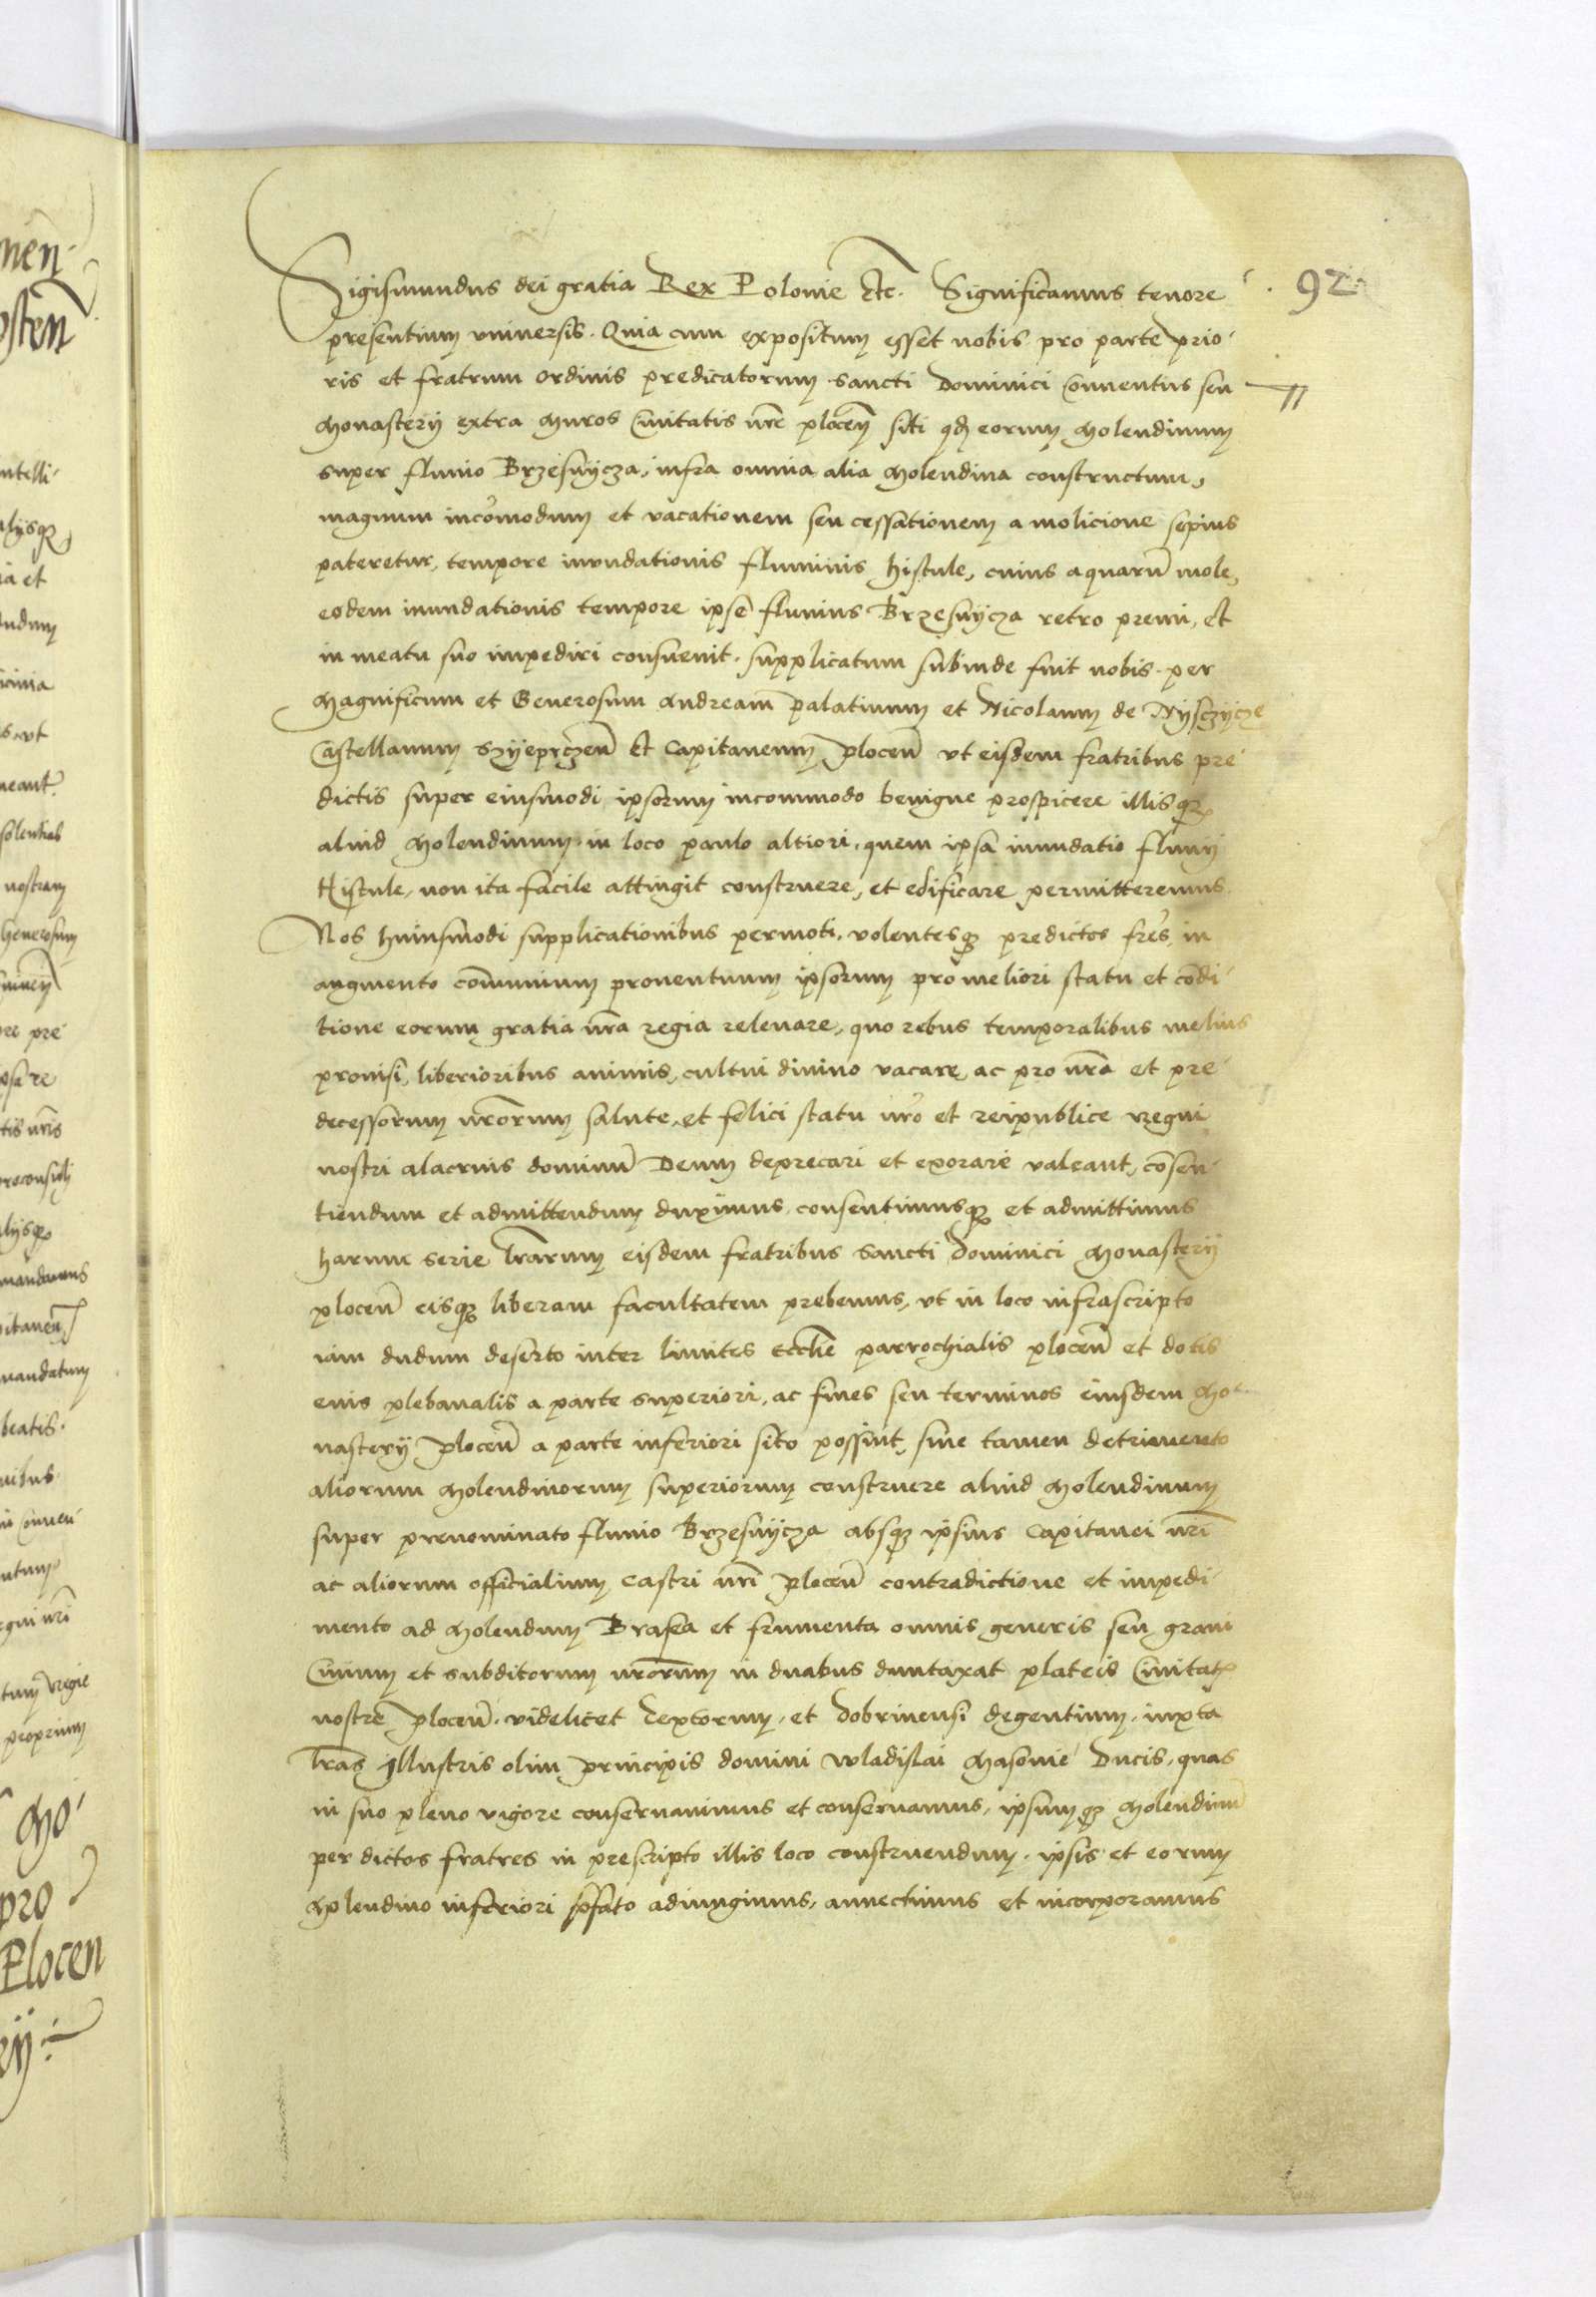 Sigismundus dei gratia Rex Polonie Etc. Significamus tenore
92
presentium vniuersis. Quia cum expositum esset nobis pro parte prio-
ris et fratrum ordinis predicatorum sancti Dominici Conuentus seu
Monasterij extra Muros Ciuitatis nr̄e plocen̄ siti qđ eorum Molendinum
super fluuio Brzesnycza, infra omnia alia Molendina constructum,
magnum incōmodum et vacationem seu cessationem a molicione sepius
pateretur, tempore inundationis fluminis histule, cuius aquarū mole,
eodem inundationis tempore ipse fluuius Brzesnycza retro premi, et
in meatu suo impediri consueuit. supplicatum subinde fuit nobis per
Magnificum et Generosum Andream palatinum et Nicolaum de Nysczycze
Castellanum Szyeprczen̄ et Capitaneum plocen̄ vt eisdem fratribus pre-
dictis super eiusmodi ipsorum incommodo benigne prospicere illisqꝫ
aliud Molendinum in loco paulo altiori, quem ipsa inundatio fluuij
Histule, non ita facile attingit construere, et edificare permitteremus.
Nos huiusmodi supplicationibus permoti, volentesqꝫ predictos fr̄es in
augmento cōmunium prouentuum ipsorum pro meliori statu et cōdi-
tione eorum gratia nr̄a regia releuare, quo rebus temporalibus melius
prouisi, liberioribus animis, cultui diuino vacare, ac pro nr̄a et pre-
decessorum nr̄orum salute, et felici statu nr̄o et reipublice regni
nostri alacrius dominū Deum deprecari et exorare valeant, cōsen-
tiendum et admittendum duximus, consentimusqꝫ et admittimus
harum serie lr̄arum eisdem fratribus sancti Dominici Monasterij
plocen̄ eisqꝫ liberam facultatem prebemus, vt in loco infrascripto
iam dudum deserto inter limites eccl̄ie parrochialis plocen̄ et dotis
euis plebanalis a parte superiori, ac fines seu terminos eiusdem Mo-
nasterij plocen̄ a parte inferiori sito possint, sine tamen detrimento
aliorum Molendinorum superiorum construere aliud Molendinum
super prenominato fluuio Brzesnycza absqꝫ ipsius Capitanei nr̄i
ac aliorum officialium Castri nr̄i plocen̄ contradictione et impedi-
mento ad Molendum Brasea et frumenta omnis generis seu grani
Ciuium et subditorum nr̄orum in duabus duntaxat plateis Ciuitatꝭ
nostre plocen̄. videlicet Textorum, et Dobrinensi degentium, iuxta
lr̄as Illustris olim principis domini wladislai Masouie Ducis, quas
in suo pleno vigore conseruauimus et conseruamus, ipsumqꝫ Molendinū
per dictos fratres in prescripto illis loco construendum, ipsis et eorum
Molendino inferiori adiungimus, annectimus et incorporamus